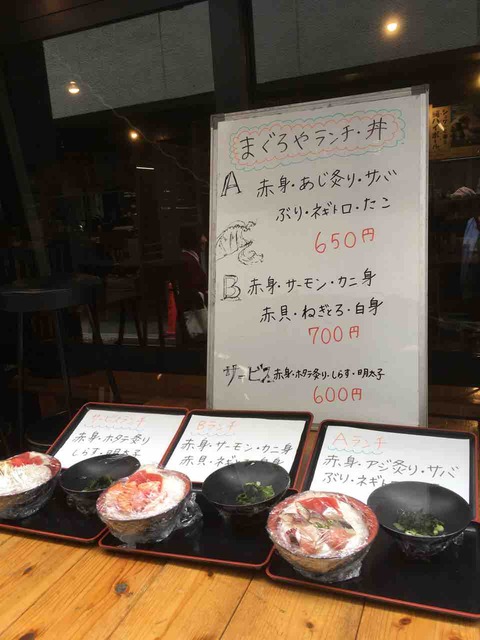 まぐろやランチ・丼
A 赤身・あじ炙り・サバ
ぶり・ネギトロ・たこ
650円
B 赤身・サーモン・カニ身
赤貝・ねぎとろ・白身
700円
サービス 赤身・ホタテ炙り・しらす・明太子
600円
サービスランチ
赤身・ホタテ炙り
しらす・明太子
Bランチ
赤身・サーモン・カニ身
赤貝・ネギ
Aランチ
赤身・アジ炙り・サバ
ぶり・ネギ